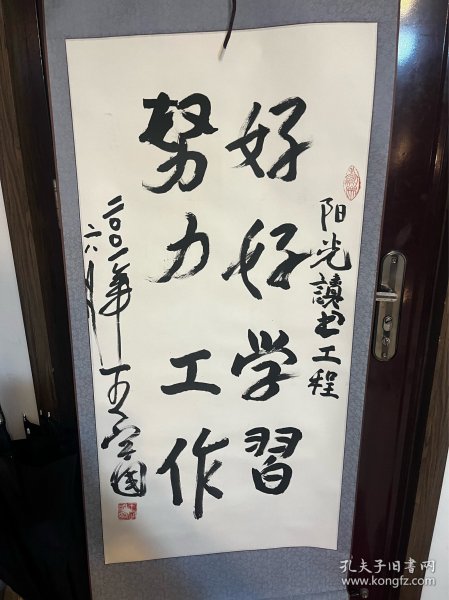 阳光讀书工程
好好学習
努力工作
二〇〇一年
六月
王定国
孔夫子旧书网
www.kongfz.com